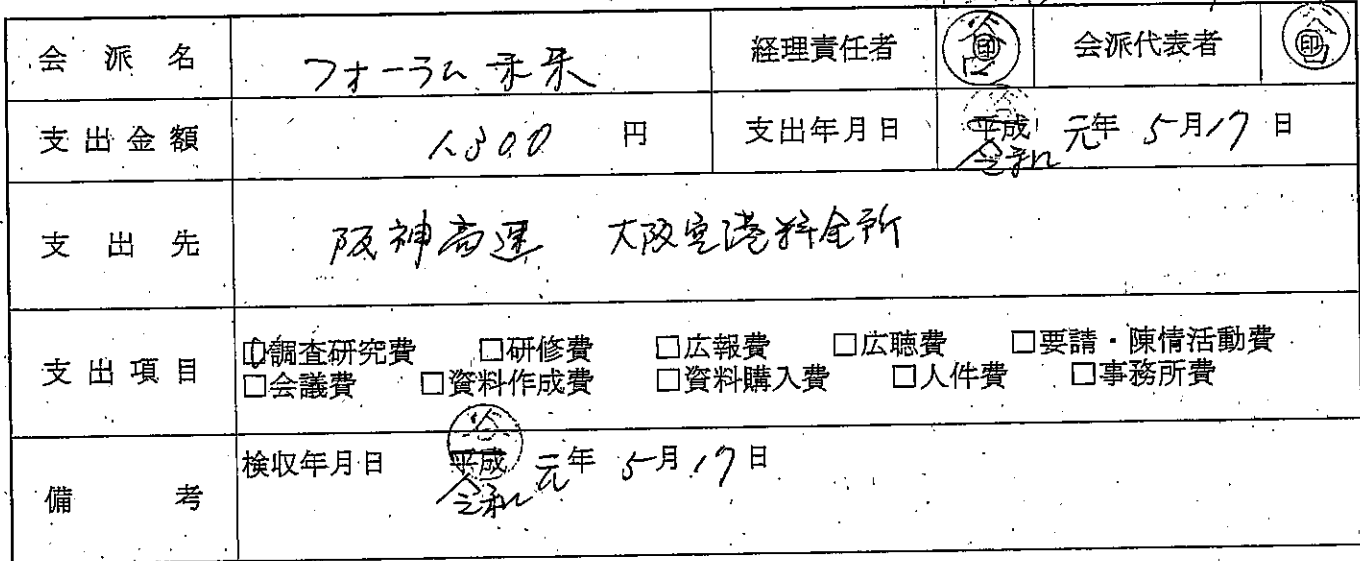 会派名 フォーラム未来 経理責任者 印 会派代表者 印
支出金額 1,300 円 支出年月日 平成 令和 元年 5月17日
支出先 阪神高速 大阪空港料金所
支出項目 ☑調査研究費 □研修費 □広報費 □広聴費 □要請・陳情活動費
□会議費 □資料作成費 □資料購入費 □人件費 □事務所費
備考 検収年月日 平成 令和 元年 5月17日